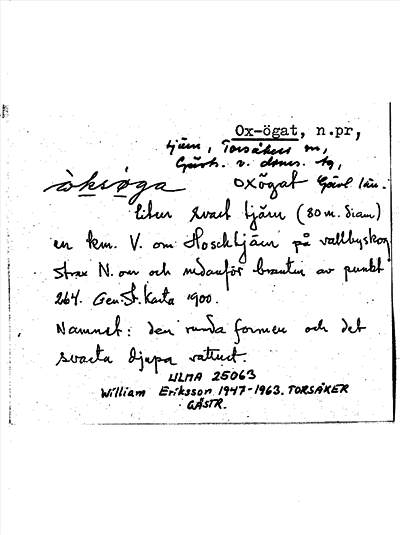 Ox-ögat, n.pr,
tjärn, Torsåkers sn,
Gästr. v. doms. tg,
òksøga oxögat Gävl. län.
liten svart tjärn (80 m. diam)
en km. V. om Hoschtjärn på vallbyskog
strax N. om och nedanför branten av punkt
264. Gen.St. Karta 1900.
Namnet: den runda formen och det
svarta djupa vattnet.
ULMA 25063
William Eriksson 1947-1963. TORSÅKER
GÄSTR.